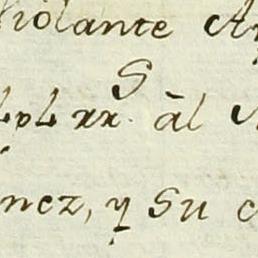 Violante A
S
xx. āl
nez, y su c